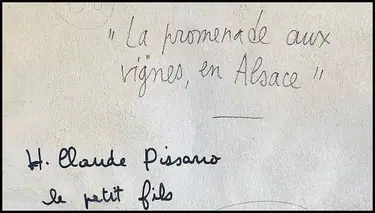 " La promenade aux
vignes, en Alsace "
H. Claude Pissarro
le petit fils